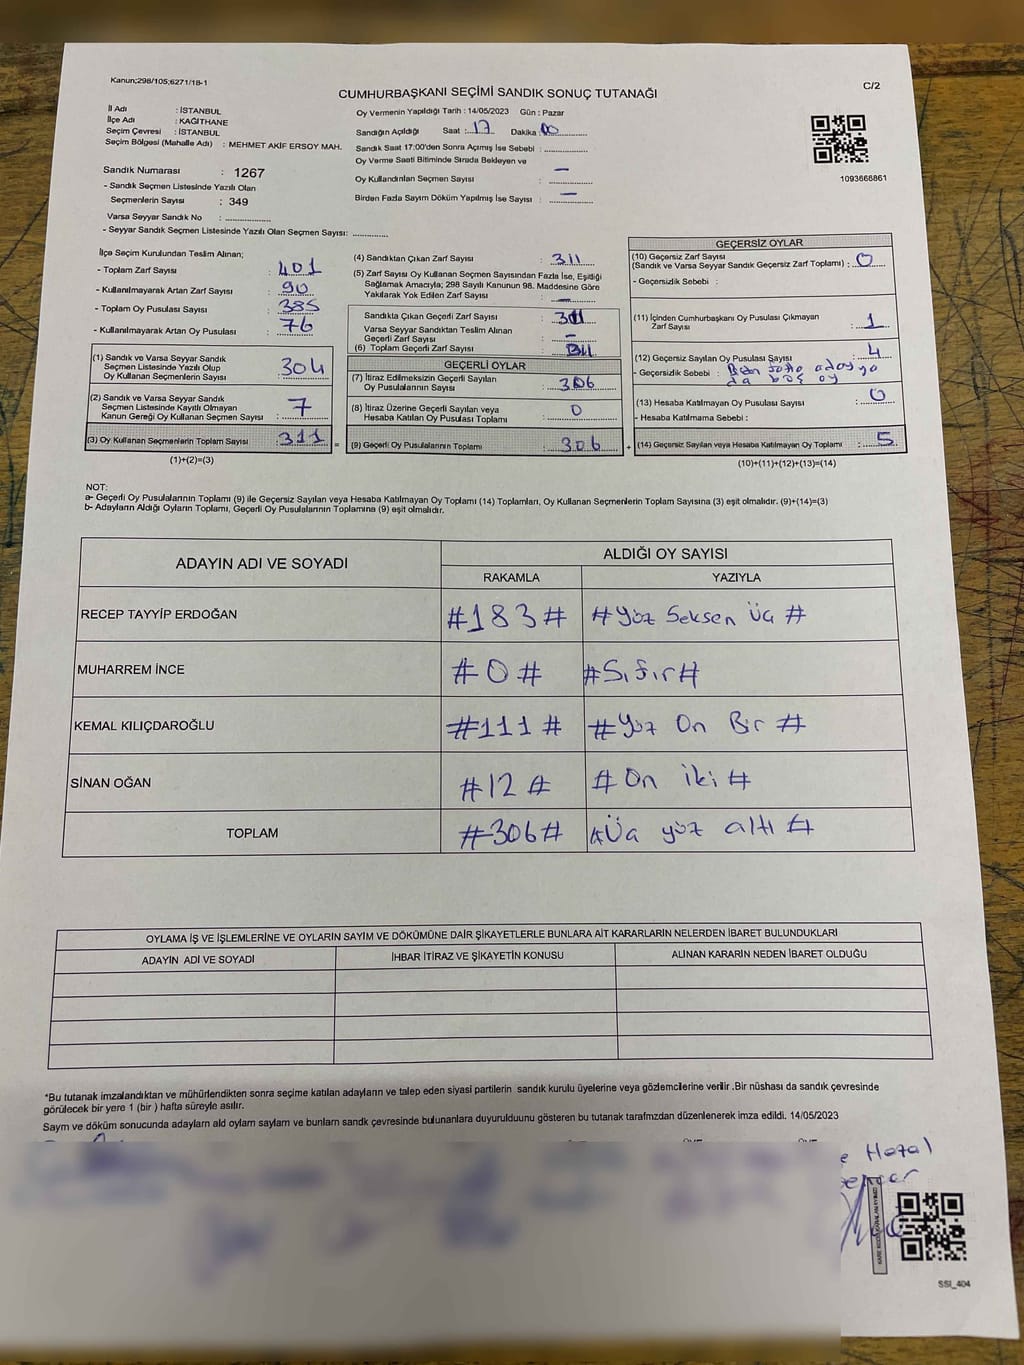 Kanun;298/105;6271/18-1
C/2
CUMHURBAŞKANI SEÇİMİ SANDIK SONUÇ TUTANAĞI
İl Adı : İSTANBUL
İlçe Adı : KAĞITHANE
Seçim Çevresi : İSTANBUL
Seçim Bölgesi (Mahalle Adı) : MEHMET AKİF ERSOY MAH.
Oy Vermenin Yapıldığı Tarih : 14/05/2023 Gün : Pazar
Sandığın Açıldığı Saat : 17 Dakika : 00
Sandık Saat 17:00'den Sonra Açımış İse Sebebi :
Oy Verme Saati Bitiminde Sırada Bekleyen ve
Oy Kullandırılan Seçmen Sayısı : —
Birden Fazla Sayım Döküm Yapılmış İse Sayısı : —
1093666861
Sandık Numarası : 1267
- Sandık Seçmen Listesinde Yazılı Olan
Seçmenlerin Sayısı : 349
Varsa Seyyar Sandık No :
- Seyyar Sandık Seçmen Listesinde Yazılı Olan Seçmen Sayısı:
İlçe Seçim Kurulundan Teslim Alınan;
- Toplam Zarf Sayısı : 401
- Kullanılmayarak Artan Zarf Sayısı : 90
- Toplam Oy Pusulası Sayısı : 385
- Kullanılmayarak Artan Oy Pusulası : 76
(1) Sandık ve Varsa Seyyar Sandık
Seçmen Listesinde Yazılı Olup
Oy Kullanan Seçmenlerin Sayısı : 304
(2) Sandık ve Varsa Seyyar Sandık
Seçmen Listesinde Kayıtlı Olmayan
Kanun Gereği Oy Kullanan Seçmen Sayısı : 7
(3) Oy Kullanan Seçmenlerin Toplam Sayısı : 311 =
(1)+(2)=(3)
(4) Sandıktan Çıkan Zarf Sayısı : 311
(5) Zarf Sayısı Oy Kullanan Seçmen Sayısından Fazla İse, Eşitliği
Sağlamak Amacıyla; 298 Sayılı Kanunun 98. Maddesine Göre
Yakılarak Yok Edilen Zarf Sayısı : —
Sandıkta Çıkan Geçerli Zarf Sayısı : 311
Varsa Seyyar Sandıktan Teslim Alınan
Geçerli Zarf Sayısı : —
(6) Toplam Geçerli Zarf Sayısı : 311
GEÇERLİ OYLAR
(7) İtiraz Edilmeksizin Geçerli Sayılan
Oy Pusulalarının Sayısı : 306
(8) İtiraz Üzerine Geçerli Sayılan veya
Hesaba Katılan Oy Pusulası Toplamı : 0
(9) Geçerli Oy Pusulalarının Toplamı : 306 +
GEÇERSİZ OYLAR
(10) Geçersiz Zarf Sayısı
(Sandık ve Varsa Seyyar Sandık Geçersiz Zarf Toplamı) : 0
- Geçersizlik Sebebi :
(11) İçinden Cumhurbaşkanı Oy Pusulası Çıkmayan
Zarf Sayısı : 1
(12) Geçersiz Sayılan Oy Pusulası Sayısı : 4
- Geçersizlik Sebebi : adaya
da boş oy
(13) Hesaba Katılmayan Oy Pusulası Sayısı : 0
- Hesaba Katılmama Sebebi :
(14) Geçersiz Sayılan veya Hesaba Katılmayan Oy Toplamı : 5
(10)+(11)+(12)+(13)=(14)
NOT:
a- Geçerli Oy Pusulalarının Toplamı (9) ile Geçersiz Sayılan veya Hesaba Katılmayan Oy Toplamı (14) Toplamları, Oy Kullanan Seçmenlerin Toplam Sayısına (3) eşit olmalıdır. (9)+(14)=(3)
b- Adayların Aldığı Oyların Toplamı, Geçerli Oy Pusulalarının Toplamına (9) eşit olmalıdır.
ADAYIN ADI VE SOYADI
ALDIĞI OY SAYISI
RAKAMLA YAZIYLA
RECEP TAYYİP ERDOĞAN #183# #Yüz Seksen Üç#
MUHARREM İNCE #0# #Sıfır#
KEMAL KILIÇDAROĞLU #111# #Yüz On Bir#
SİNAN OĞAN #12# #On iki#
TOPLAM #306# #Üç yüz altı#
OYLAMA İŞ VE İŞLEMLERİNE VE OYLARIN SAYIM VE DÖKÜMÜNE DAİR ŞİKAYETLERLE BUNLARA AİT KARARLARIN NELERDEN İBARET BULUNDUKLARI
ADAYIN ADI VE SOYADI İHBAR İTİRAZ VE ŞİKAYETİN KONUSU ALINAN KARARIN NEDEN İBARET OLDUĞU
*Bu tutanak imzalandıktan ve mühürlendikten sonra seçime katılan adayların ve talep eden siyasi partilerin sandık kurulu üyelerine veya gözlemcilerine verilir .Bir nüshası da sandık çevresinde
görülecek bir yere 1 (bir ) hafta süreyle asılır.
Sayım ve döküm sonucunda adayların ald oylam saylam ve bunlam sandk çevresinde bulunanlara duyurulduunu gösteren bu tutanak tarafmzdan düzenlenerek imza edildi. 14/05/2023
Hazal
SSI_404